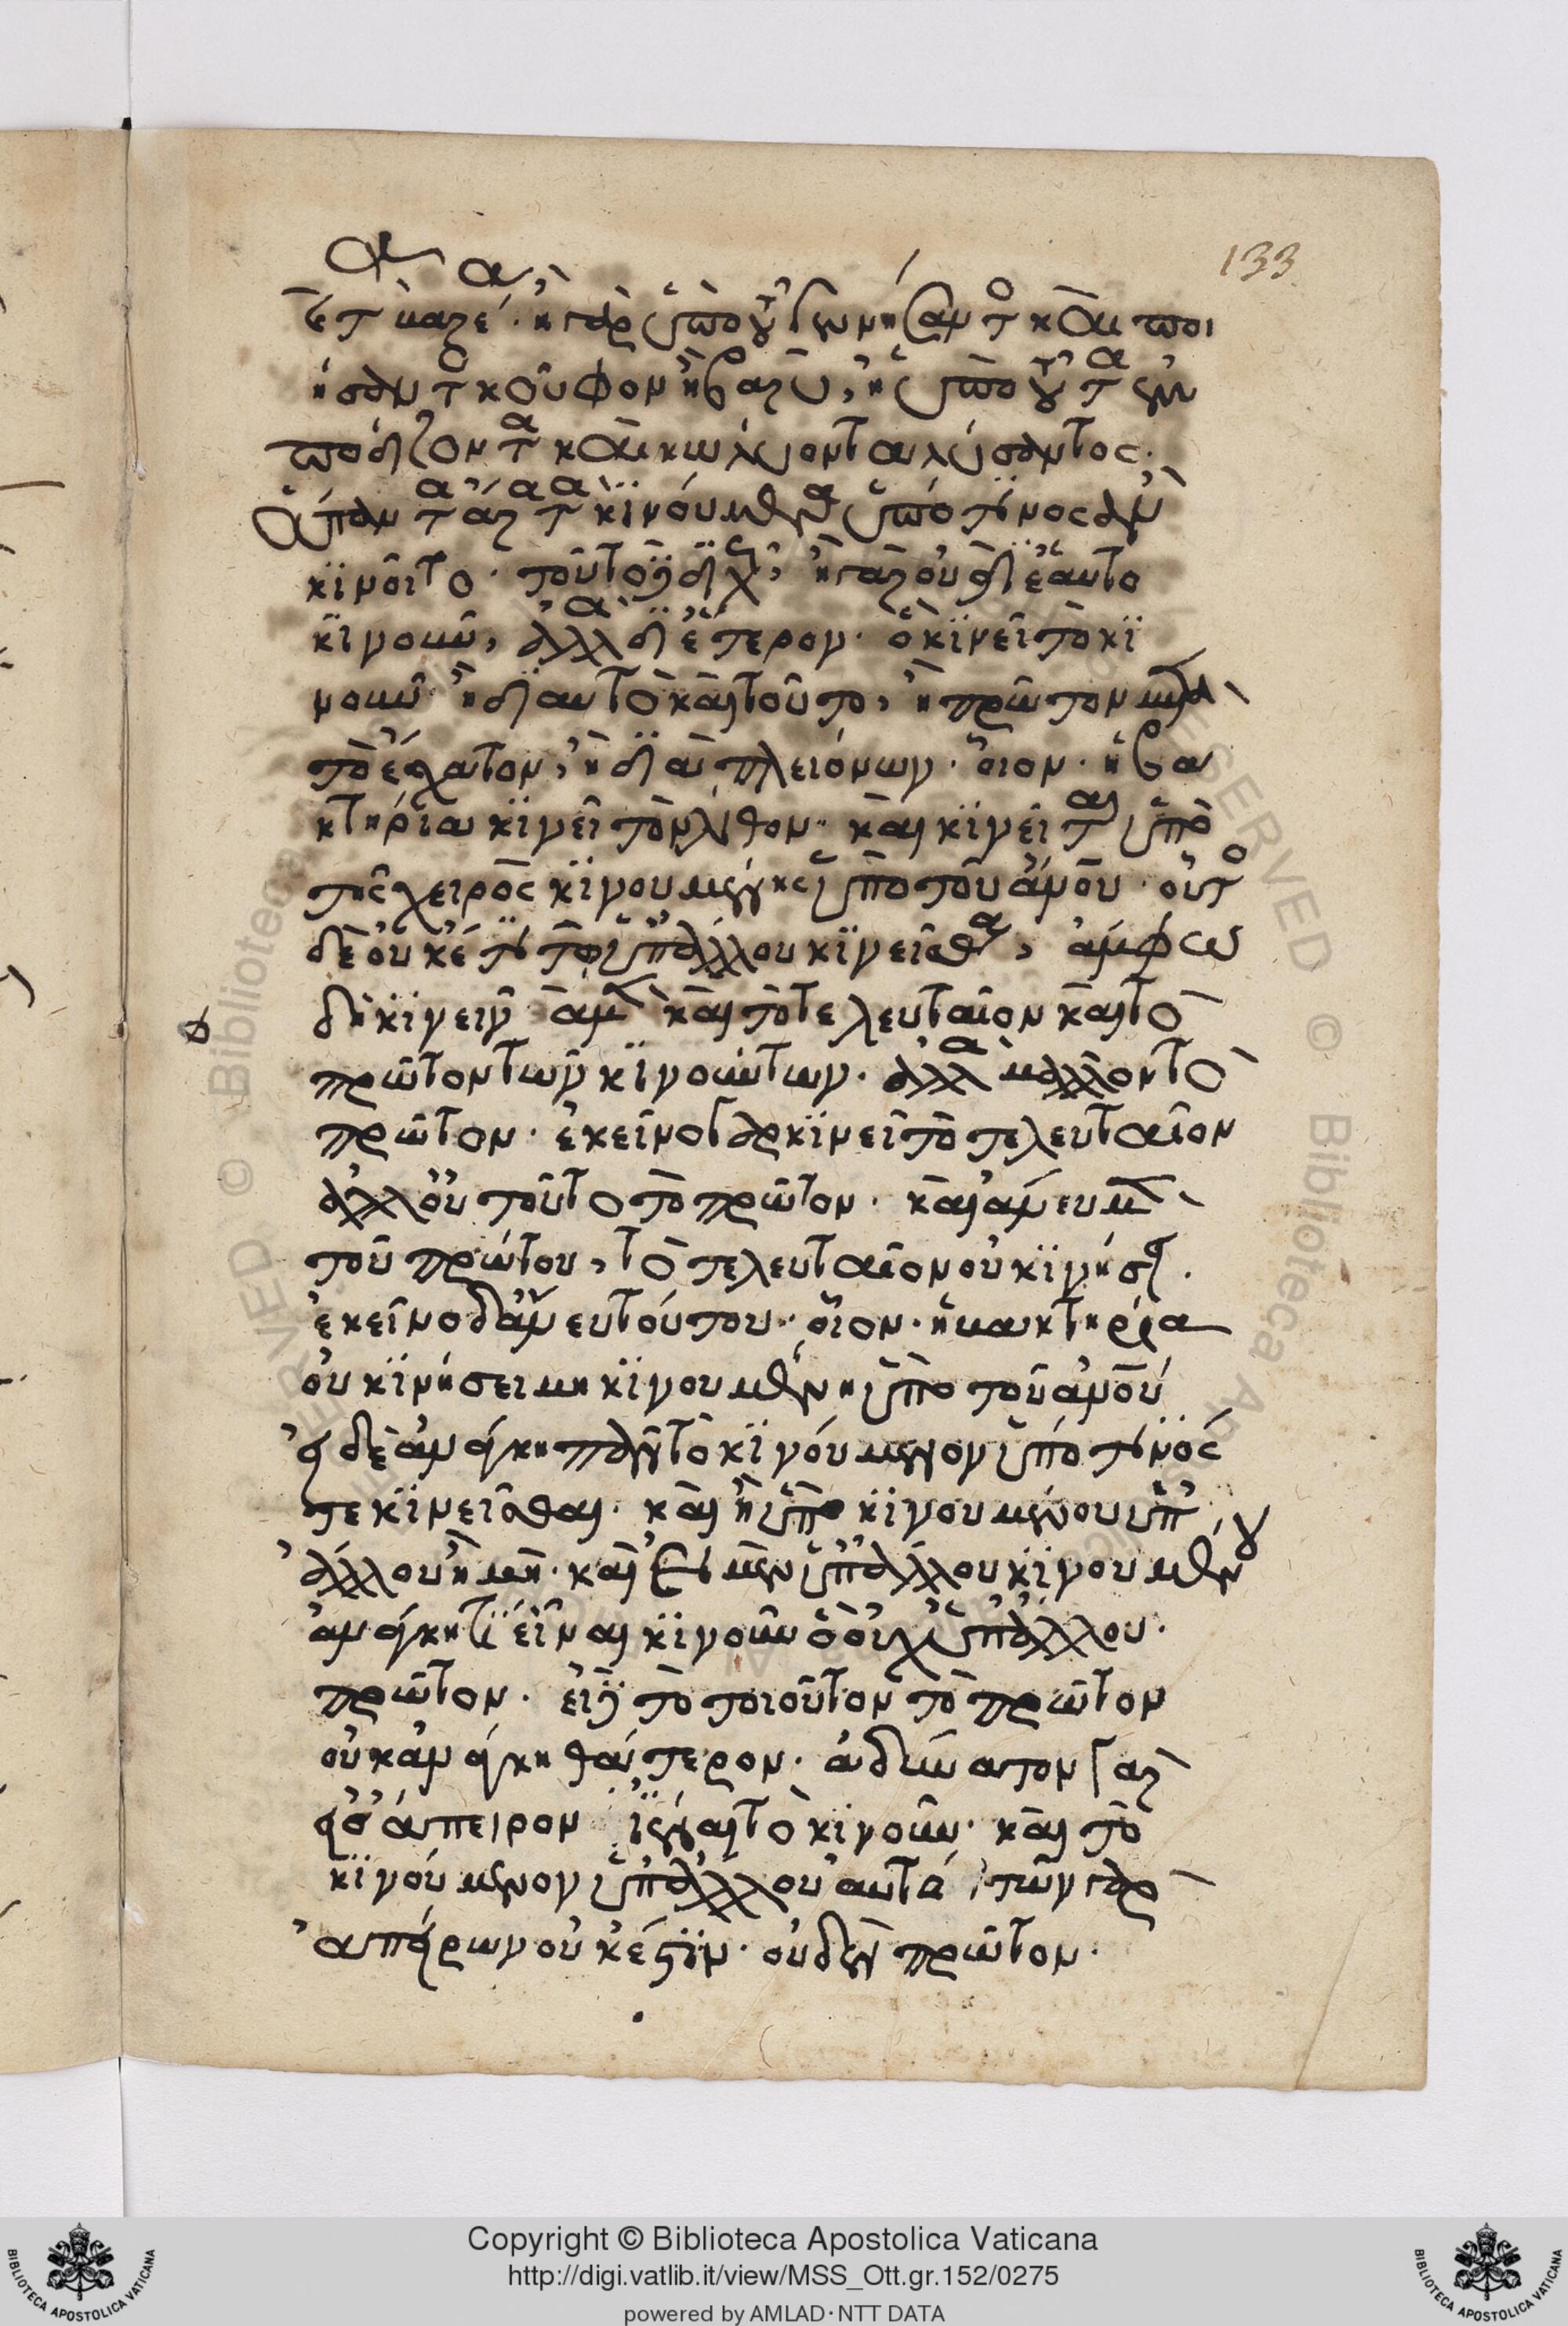 133
τε τὰ βαρέα· ἢ γὰρ ὑπὸ τοῦ γεννήσαντος καὶ ποι
ήσαντος κοῦφον ἢ βαρύ, ἢ ὑπὸ τοῦ τὰ ἐμ
ποδίζοντα καὶ κωλύοντα λύσαντος·
ἅπαντα τὰ κινούμενα ὑπό τινος ἂν
κινοῖτο· τοῦτο δὲ διχῶς, ἢ γὰρ οὐ δι' ἑαυτὸ
κινοῦν, ἀλλὰ δι' ἕτερον· ὃ κινεῖ τὸ κι
νοῦν· ἢ δι' αὐτὸ καὶ τοῦτο, ἢ πρῶτον μετὰ
τὸ ἔσχατον, ἢ διὰ πλειόνων· οἷον· ἡ βα
κτηρία κινεῖ τὸν λίθον· καὶ κινεῖται ὑπὸ
τῆς χειρὸς κινουμένης ὑπὸ τοῦ ἀνοῦ· οὗτος
δὲ οὐκέτι τῷ ὑπ' ἄλλου κινεῖσθαι, ἄμφω
δὴ κινεῖν φαμὲν καὶ τὸ τελευταῖον καὶ τὸ
πρῶτον τῶν κινούντων· ἀλλὰ μᾶλλον τὸ
πρῶτον· ἐκεῖνο γὰρ κινεῖ τὸ τελευταῖον
ἀλλ' οὐ τοῦτο τὸ πρῶτον· καὶ ἄνευ μὲν
τοῦ πρώτου, τὸ τελευταῖον οὐ κινήσει·
ἐκεῖνο δ' ἄνευ τούτου· οἷον· ἡ βακτηρία
οὐ κινήσει μὴ κινουμένη ὑπὸ τοῦ ἀνοῦ
εἰ δὲ ἀνάγκη πᾶν τὸ κινούμενον ὑπό τινός
τε κινεῖσθαι· καὶ ἢ ὑπὸ κινουμένου ὑπ'
ἄλλου ἢ μή· καὶ εἰ μὲν ὑπ' ἄλλου κινουμένου
ἀνάγκη τι εἶναι κινοῦν ὃ οὐχ ὑπ' ἄλλου·
πρῶτον· εἰ δὲ τὸ τοιοῦτον τὸ πρῶτον
οὐκ ἀνάγκη θάτερον· ἀδύνατον γὰρ
εἰς ἄπειρον ἰέναι τὸ κινοῦν· καὶ τὸ
κινούμενον ὑπ' ἄλλου αὐτό, τῶν γὰρ
ἀπείρων οὐκ ἔστιν· οὐδὲν πρῶτον·
Copyright © Biblioteca Apostolica Vaticana
http://digi.vatlib.it/view/MSS_Ott.gr.152/0275
powered by AMLAD·NTT DATA